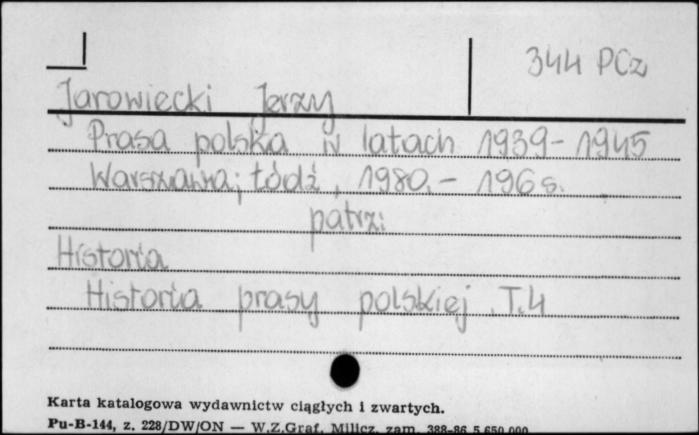 344 PCz
Jarowiecki Jerzy
Prasa polska w latach 1939-1945
Warszawa; Łódź, 1980.- 196 s.
patrz:
Historia
Historia prasy polskiej. T.4
Karta katalogowa wydawnictw ciągłych i zwartych.
Pu-B-144, z. 228/DW/ON — W.Z.Graf. Milicz, zam. 388-86 5.650.000